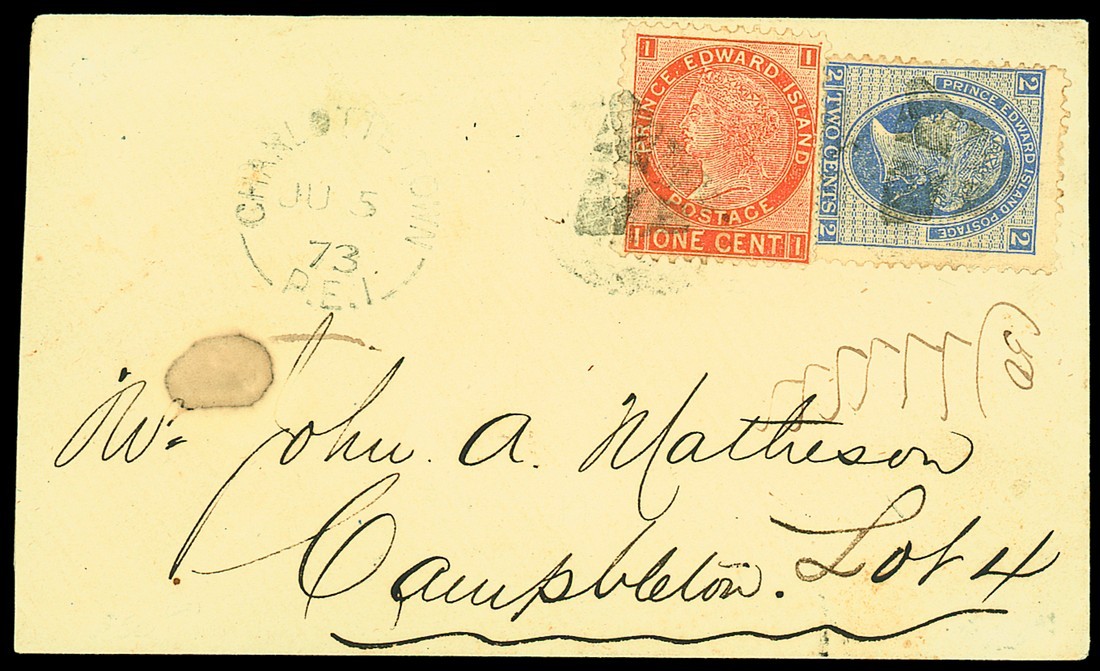 CHARLOTTETOWN
JU 5
73
P.E.I
1 1
PRINCE EDWARD ISLAND
POSTAGE
1 ONE CENT 1
2 2
PRINCE EDWARD ISLAND POSTAGE
2 TWO CENTS 2
Mr. John A. Matheson
Campbleton. Lot 4